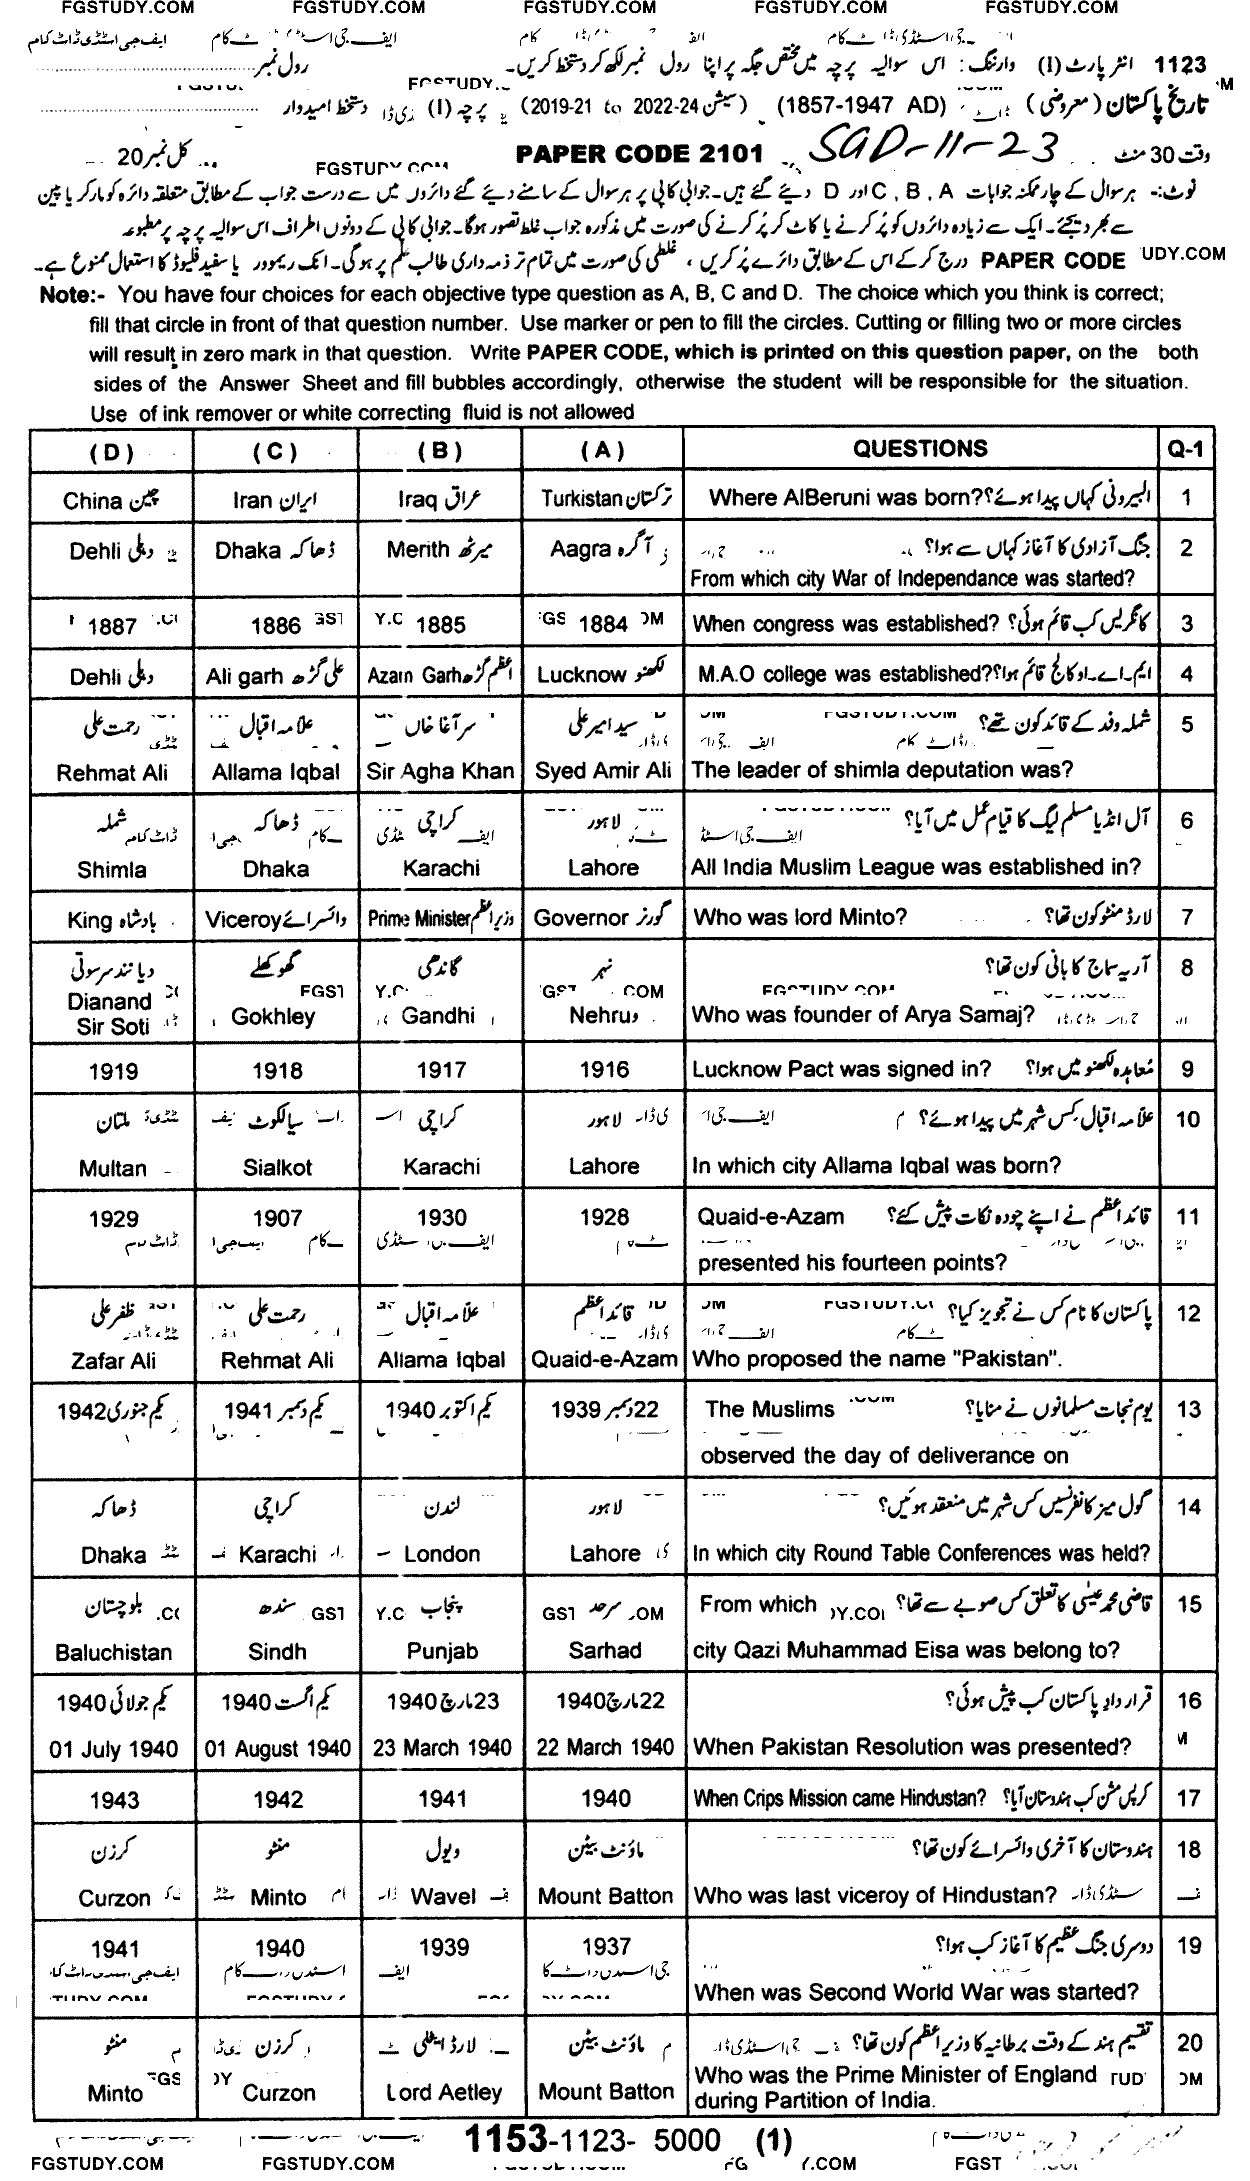 FGSTUDY.COM FGSTUDY.COM FGSTUDY.COM FGSTUDY.COM FGSTUDY.COM
ایف جی اسٹڈی ڈاٹ کام
1123 انٹر پارٹ (I) وارننگ : اس سوالیہ پرچہ میں مختص جگہ پر اپنا رول نمبر لکھ کر دستخط کریں۔ رول نمبر
تاریخ پاکستان (معروضی) (1857-1947 AD) (سیشن 2019-21 to 2022-24) پرچہ (I) دستخط امیدوار
وقت 30 منٹ SGD-11-23 PAPER CODE 2101 FGSTUDY.COM کل نمبر 20
نوٹ:- ہر سوال کے چار ممکنہ جوابات A ، B ، C اور D دیئے گئے ہیں۔ جوابی کاپی پر ہر سوال کے سامنے دیئے گئے دائروں میں سے درست جواب کے مطابق متعلقہ دائرہ کو مارکر یا پین
سے بھر دیجئے۔ ایک سے زیادہ دائروں کو پُر کرنے یا کاٹ کر پُر کرنے کی صورت میں مذکورہ جواب غلط تصور ہوگا۔ جوابی کاپی کے دونوں اطراف اس سوالیہ پرچہ پر مطبوعہ
PAPER CODE درج کرکے اس کے مطابق دائرے پُر کریں ، غلطی کی صورت میں تمام تر ذمہ داری طالب علم پر ہوگی۔ انک ریموور یا سفید فلیوڈ کا استعمال ممنوع ہے۔
Note:- You have four choices for each objective type question as A, B, C and D. The choice which you think is correct;
fill that circle in front of that question number. Use marker or pen to fill the circles. Cutting or filling two or more circles
will result in zero mark in that question. Write PAPER CODE, which is printed on this question paper, on the both
sides of the Answer Sheet and fill bubbles accordingly, otherwise the student will be responsible for the situation.
Use of ink remover or white correcting fluid is not allowed
(D) (C) (B) (A) QUESTIONS Q-1
China چین Iran ایران Iraq عراق Turkistan ترکستان Where AlBeruni was born? البیرونی کہاں پیدا ہوئے؟ 1
Dehli دہلی Dhaka ڈھاکہ Merith میرٹھ Aagra آگرہ جنگ آزادی کا آغاز کہاں سے ہوا؟ 2
From which city War of Independance was started?
1887 1886 1885 1884 When congress was established? کانگریس کب قائم ہوئی؟ 3
Dehli دہلی Ali garh علی گڑھ Azam Garh اعظم گڑھ Lucknow لکھنو M.A.O college was established? ایم۔اے۔او کالج قائم ہوا؟ 4
رحمت علی علامہ اقبال سر آغا خاں سید امیر علی شملہ وفد کے قائد کون تھے؟ 5
Rehmat Ali Allama Iqbal Sir Agha Khan Syed Amir Ali The leader of shimla deputation was?
شملہ ڈھاکہ کراچی لاہور آل انڈیا مسلم لیگ کا قیام عمل میں آیا؟ 6
Shimla Dhaka Karachi Lahore All India Muslim League was established in?
King بادشاہ Viceroy وائسرائے Prime Minister وزیراعظم Governor گورنر Who was lord Minto? لارڈ منٹو کون تھا؟ 7
دیانند سرسوتی گوکھلے گاندھی نہر آریہ سماج کا بانی کون تھا؟ 8
Dianand Sir Soti Gokhley Gandhi Nehru Who was founder of Arya Samaj?
1919 1918 1917 1916 Lucknow Pact was signed in? مُعاہدہ لکھنو میں ہوا؟ 9
ملتان سیالکوٹ کراچی لاہور علامہ اقبال کس شہر میں پیدا ہوئے؟ 10
Multan Sialkot Karachi Lahore In which city Allama Iqbal was born?
1929 1907 1930 1928 Quaid-e-Azam قائداعظم نے اپنے چودہ نکات پیش کئے؟ 11
presented his fourteen points?
ظفر علی رحمت علی علامہ اقبال قائداعظم پاکستان کا نام کس نے تجویز کیا؟ 12
Zafar Ali Rehmat Ali Allama Iqbal Quaid-e-Azam Who proposed the name "Pakistan".
یکم جنوری 1942 یکم دسمبر 1941 یکم اکتوبر 1940 22 دسمبر 1939 The Muslims یوم نجات مسلمانوں نے منایا؟ 13
observed the day of deliverance on
ڈھاکہ کراچی لندن لاہور گول میز کانفرنسیں کس شہر میں منعقد ہوئیں؟ 14
Dhaka Karachi London Lahore In which city Round Table Conferences was held?
بلوچستان سندھ پنجاب سرحد From which قاضی محمد عیسیٰ کا تعلق کس صوبے سے تھا؟ 15
Baluchistan Sindh Punjab Sarhad city Qazi Muhammad Eisa was belong to?
یکم جولائی 1940 یکم اگست 1940 23 مارچ 1940 22 مارچ 1940 قرارداد پاکستان کب پیش ہوئی؟ 16
01 July 1940 01 August 1940 23 March 1940 22 March 1940 When Pakistan Resolution was presented?
1943 1942 1941 1940 When Crips Mission came Hindustan? کرپس مشن کب ہندوستان آیا؟ 17
کرزن منٹو ویول ماؤنٹ بیٹن ہندوستان کا آخری وائسرائے کون تھا؟ 18
Curzon Minto Wavel Mount Batton Who was last viceroy of Hindustan?
1941 1940 1939 1937 دوسری جنگ عظیم کا آغاز کب ہوا؟ 19
When was Second World War was started?
منٹو کرزن لارڈ ایٹلی ماؤنٹ بیٹن تقسیم ہند کے وقت برطانیہ کا وزیراعظم کون تھا؟ 20
Minto Curzon Lord Aetley Mount Batton Who was the Prime Minister of England
during Partition of India.
1153-1123- 5000 (1)
FGSTUDY.COM FGSTUDY.COM FGSTUDY.COM